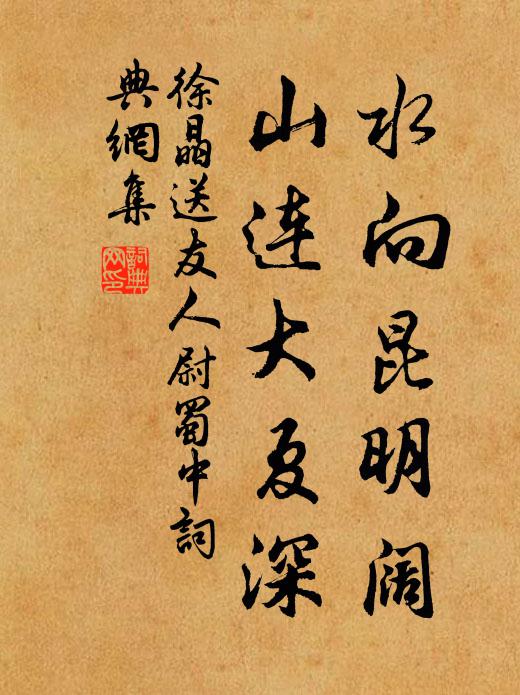 水向昆明阔
山連大夏深
徐晶送友人尉蜀中詞
典網集
詞典
网印